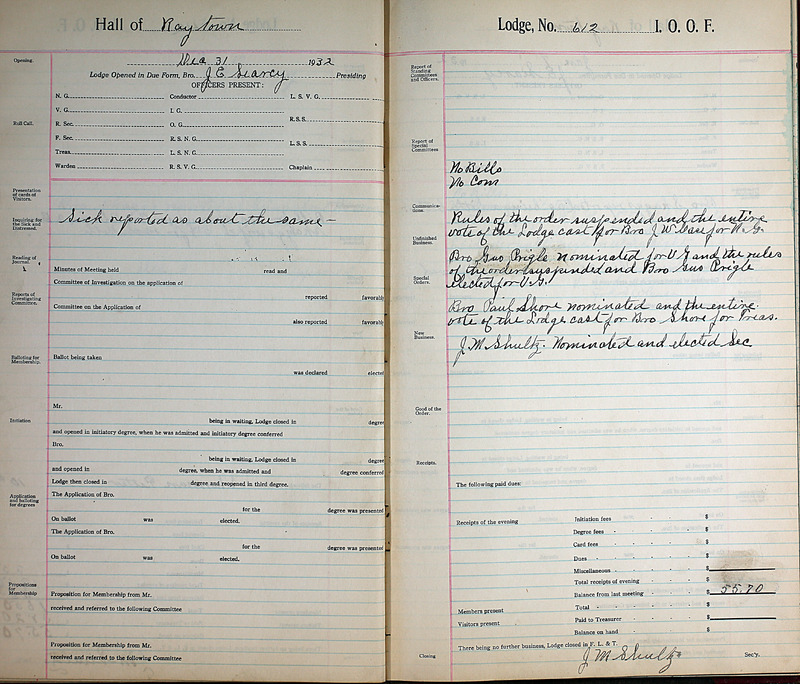 Hall of Raytown
Opening.
Dec 31 1932
Lodge Opened in Due Form, Bro. J. E. Searcy Presiding
OFFICERS PRESENT:
Roll Call.
N. G. Conductor L. S. V. G.
V. G. I. G.
R. Sec. O. G. R. S. S.
F. Sec. R. S. N. G.
Treas. L. S. N. G. L. S. S.
Warden R. S. V. G. Chaplain
Presentation of cards of Visitors.
Inquiring for the Sick and Distressed.
Sick reported as about the same -
Reading of Journal.
Minutes of Meeting held read and
Committee of Investigation on the application of
Reports of Investigating Committee.
reported favorabl
Committee on the Application of
also reported favorabl
Balloting for Membership.
Ballot being taken
was declared elected
Mr.
Initiation
being in waiting, Lodge closed in degree
and opened in initiatory degree, when he was admitted and initiatory degree conferred
Bro.
being in waiting, Lodge closed in degree
and opened in degree, when he was admitted and degree conferred
Lodge then closed in degree and reopened in third degree.
Application and balloting for degrees
The Application of Bro.
for the degree was presented
On ballot was elected.
The Application of Bro.
for the degree was presented
On ballot was elected.
Propositions for Membership
Proposition for Membership from Mr.
received and referred to the following Committee
Proposition for Membership from Mr.
received and referred to the following Committee
Lodge, No. 612 I. O. O. F.
Report of Standing Committees and Officers.
Report of Special Committees
No Bills
No Com
Communications.
Rules of the order suspended and the entire
vote of the Lodge cast for Bro J W Vass for N. G.
Unfinished Business.
Bro Gus Prigle nominated for V G and the rules
of the order suspended and Bro Gus Prigle
elected for V. G.
Special Orders.
Bro Paul Shore nominated and the entire
vote of the Lodge cast for Bro Shore for Treas.
New Business.
J. M Shultz. Nominated and elected Sec
Good of the Order.
Receipts.
The following paid dues:
Receipts of the evening Initiation fees $
Degree fees $
Card fees $
Dues $
Miscellaneous $
Total receipts of evening $
Balance from last meeting $ 55.70
Members present Total $
Visitors present Paid to Treasurer $
Balance on hand $
There being no further business, Lodge closed in F. L. & T.
Closing J M Shultz Sec'y.